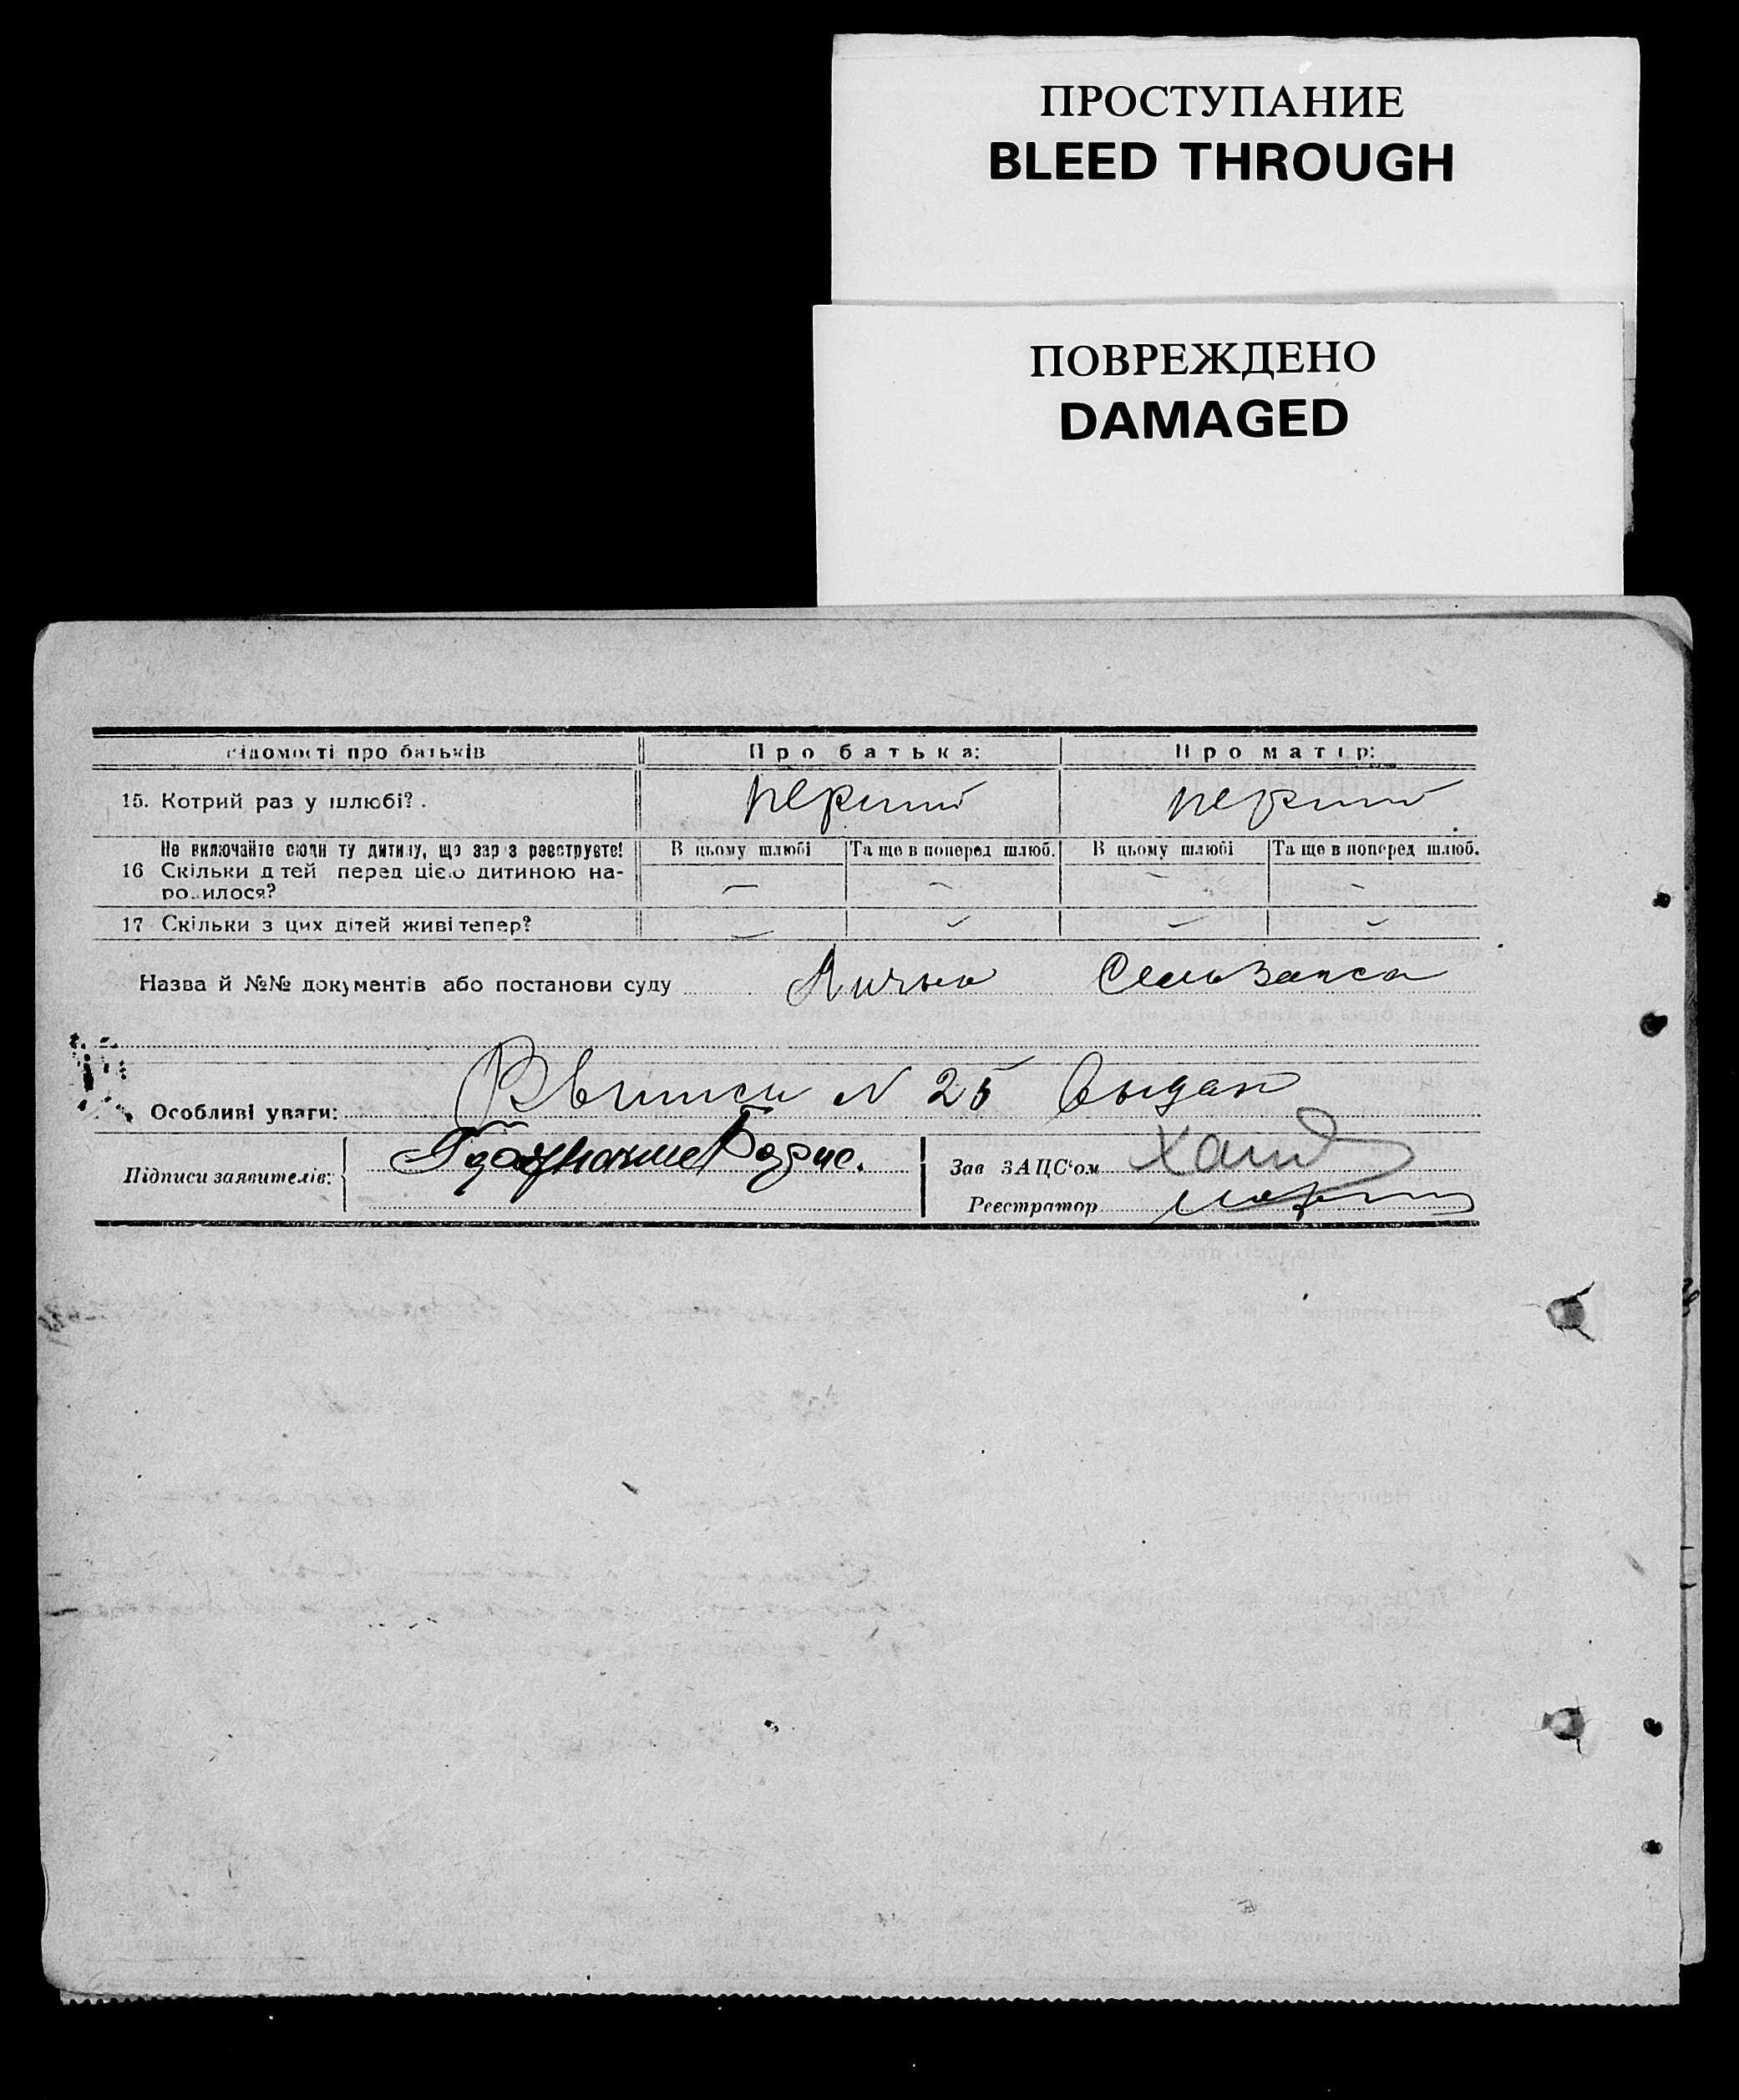 ПРОСТУПАНИЕ
BLEED THROUGH
ПОВРЕЖДЕНО
DAMAGED
відомості про батьків Про батька: Про матір:
15. Котрий раз у шлюбі? . перший перший
Не включайте сюди ту дитину, що зараз реєструєте! В цьому шлюбі Та ще в поперед шлюб. В цьому шлюбі Та ще в поперед шлюб.
16 Скільки дітей перед цією дитиною на-
родилося? — — — —
17 Скільки з цих дітей живі тепер? — — — —
Назва й №№ документів або постанови суду
N 25 выдан
Особливі уваги:
Підписи заявителів: Зав ЗАЦС'ом
Реєстратор